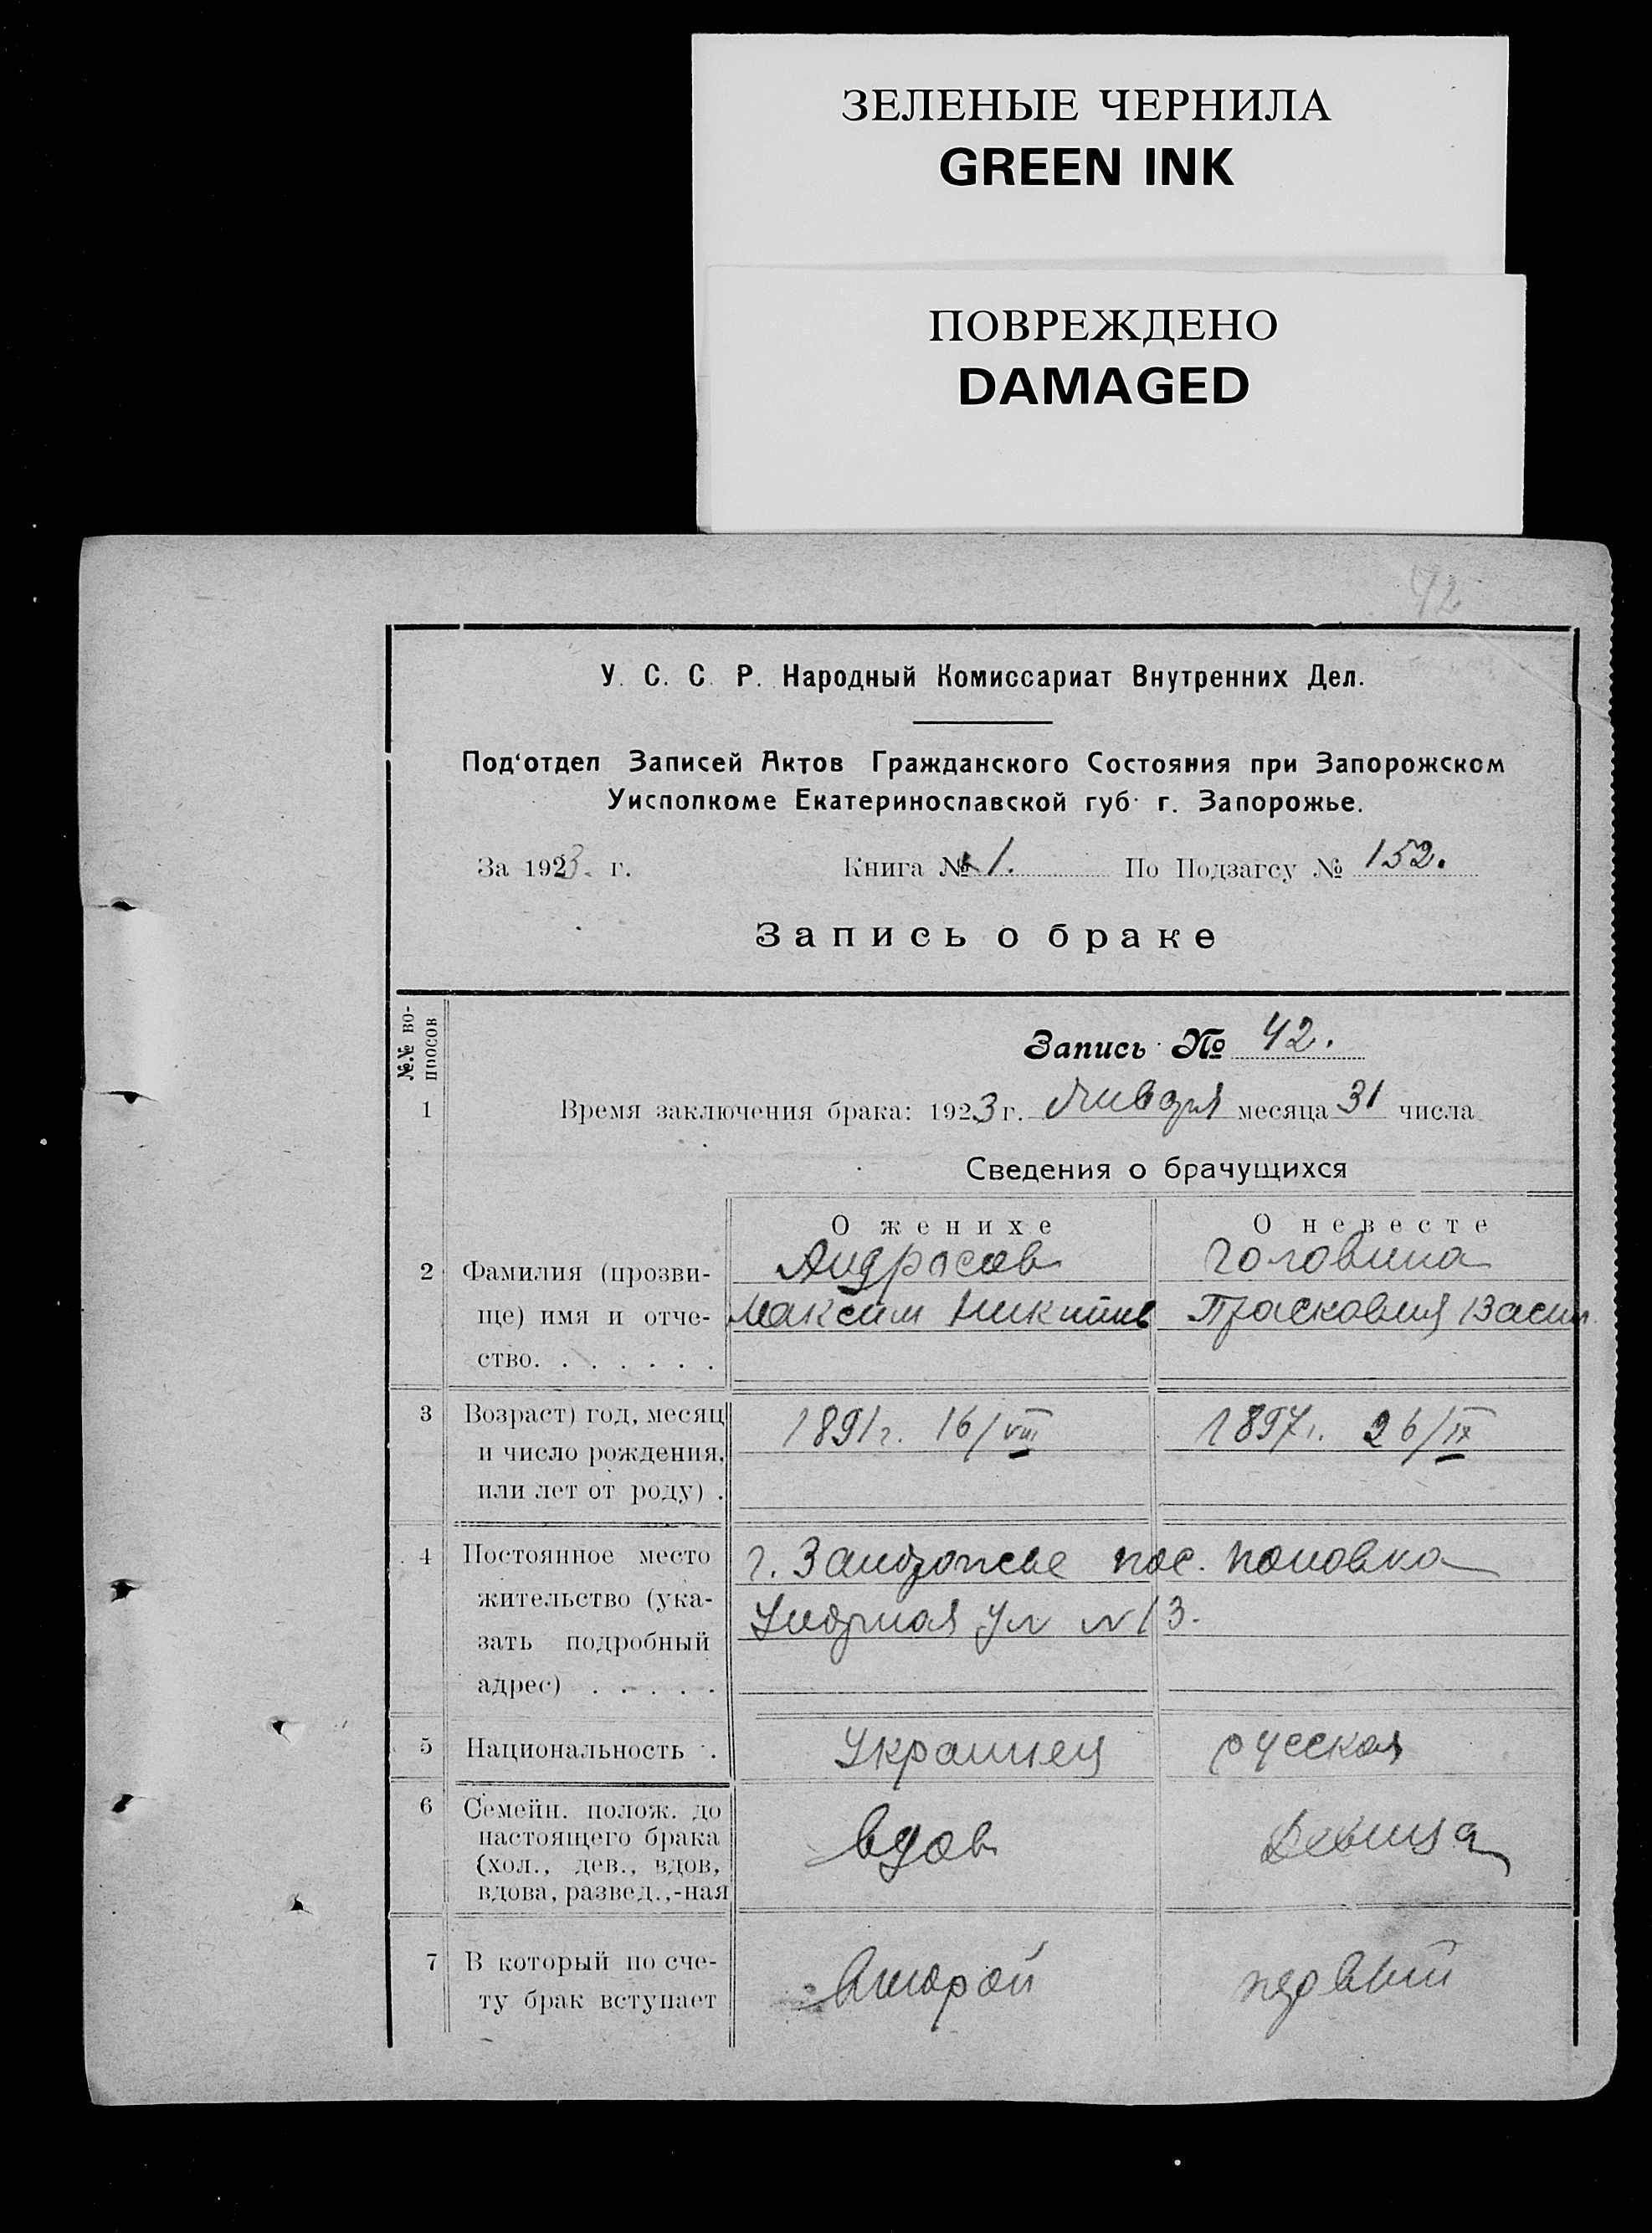 ЗЕЛЕНЫЕ ЧЕРНИЛА
GREEN INK
ПОВРЕЖДЕНО
DAMAGED
42
У. С. С. Р. Народный Комиссариат Внутренних Дел.
Под'отдел Записей Актов Гражданского Состояния при Запорожском
Уисполкоме Екатеринославской губ. г. Запорожье.
За 1923. г. Книга № 1. По Подзагсу № 152.
Запись о браке
№.№ во-
просов
Запись № 42.
1 Время заключения брака: 1923 г. Января месяца 31 числа
Сведения о брачущихся
О женихе О невесте
2 Фамилия (прозви- Андросов Головина
ще) имя и отче- Максим Никитив Прасковия Васил.
ство. . . . . . .
3 Возраст) год, месяц 1891 г. 16/VIII 1897 г. 26/IX
и число рождения,
или лет от роду) .
4 Постоянное место г. Запорожье пос.
жительство (ука- ул N 13.
зать подробный
адрес) . . . . .
5 Национальность . Украинец русская
6 Семейн. полож. до
настоящего брака вдов Девица
(хол., дев., вдов,
вдова, развед.,-ная
7 В который по сче- Второй первый
ту брак вступает